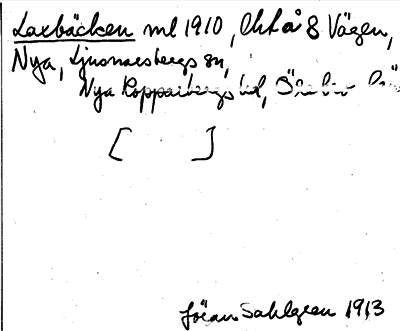 Laxbäcken ml 1910, Cht å 8 Vägen,
Nya, Ljusnarsbergs sn,
Nya Kopparbergs hd, Örebro
[ ]
Jöran Sahlgren 1913